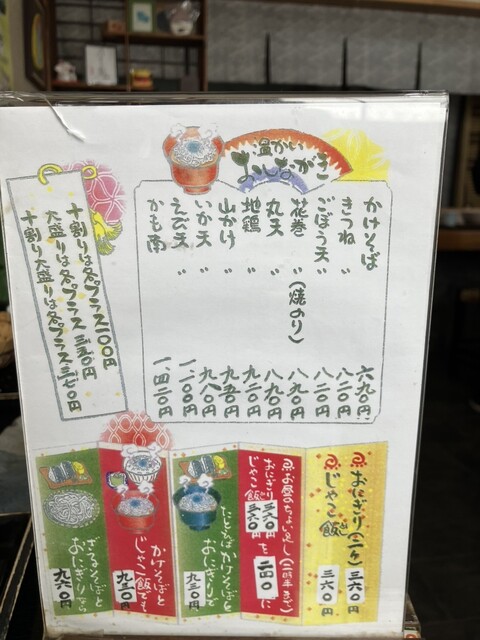 温かい
おしながき
かけそば 六九〇円
きつね 〃 八二〇円
ごぼう天 〃 八二〇円
花巻 〃 (焼のり) 八九〇円
丸天 〃 八九〇円
地鶏 〃 九二〇円
山かけ 〃 九五〇円
いか天 〃 九八〇円
えび天 〃 一、一〇〇円
かも南 一、四二〇円
十割りは各プラス一〇〇円
大盛りは各プラス三五〇円
十割り大盛りは各プラス三七〇円
おにぎり(二ヶ) 三六〇円
じゃこ飯 三六〇円
お昼のちょい足し(二時半まで)
おにぎり 三六〇円を
じゃこ飯 三六〇円 二四〇円に
たとえばかけそばと
おにぎりで 九三〇円
かけそばと
じゃこ飯でも 九三〇円
ざるそばと
おにぎりなら 九六〇円